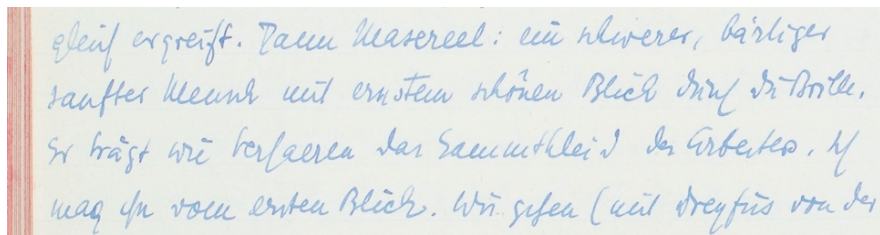 gleich ergreift. Dann Masereel: ein schwerer, bärtiger
sanfter Mensch mit ernstem schönen Blick durch die Brille.
Er trägt wie Verhaeren das Sammtkleid des Arbeiters. Ich
mag ihn vom ersten Blick. Wir gehen (mit Dreyfus von der